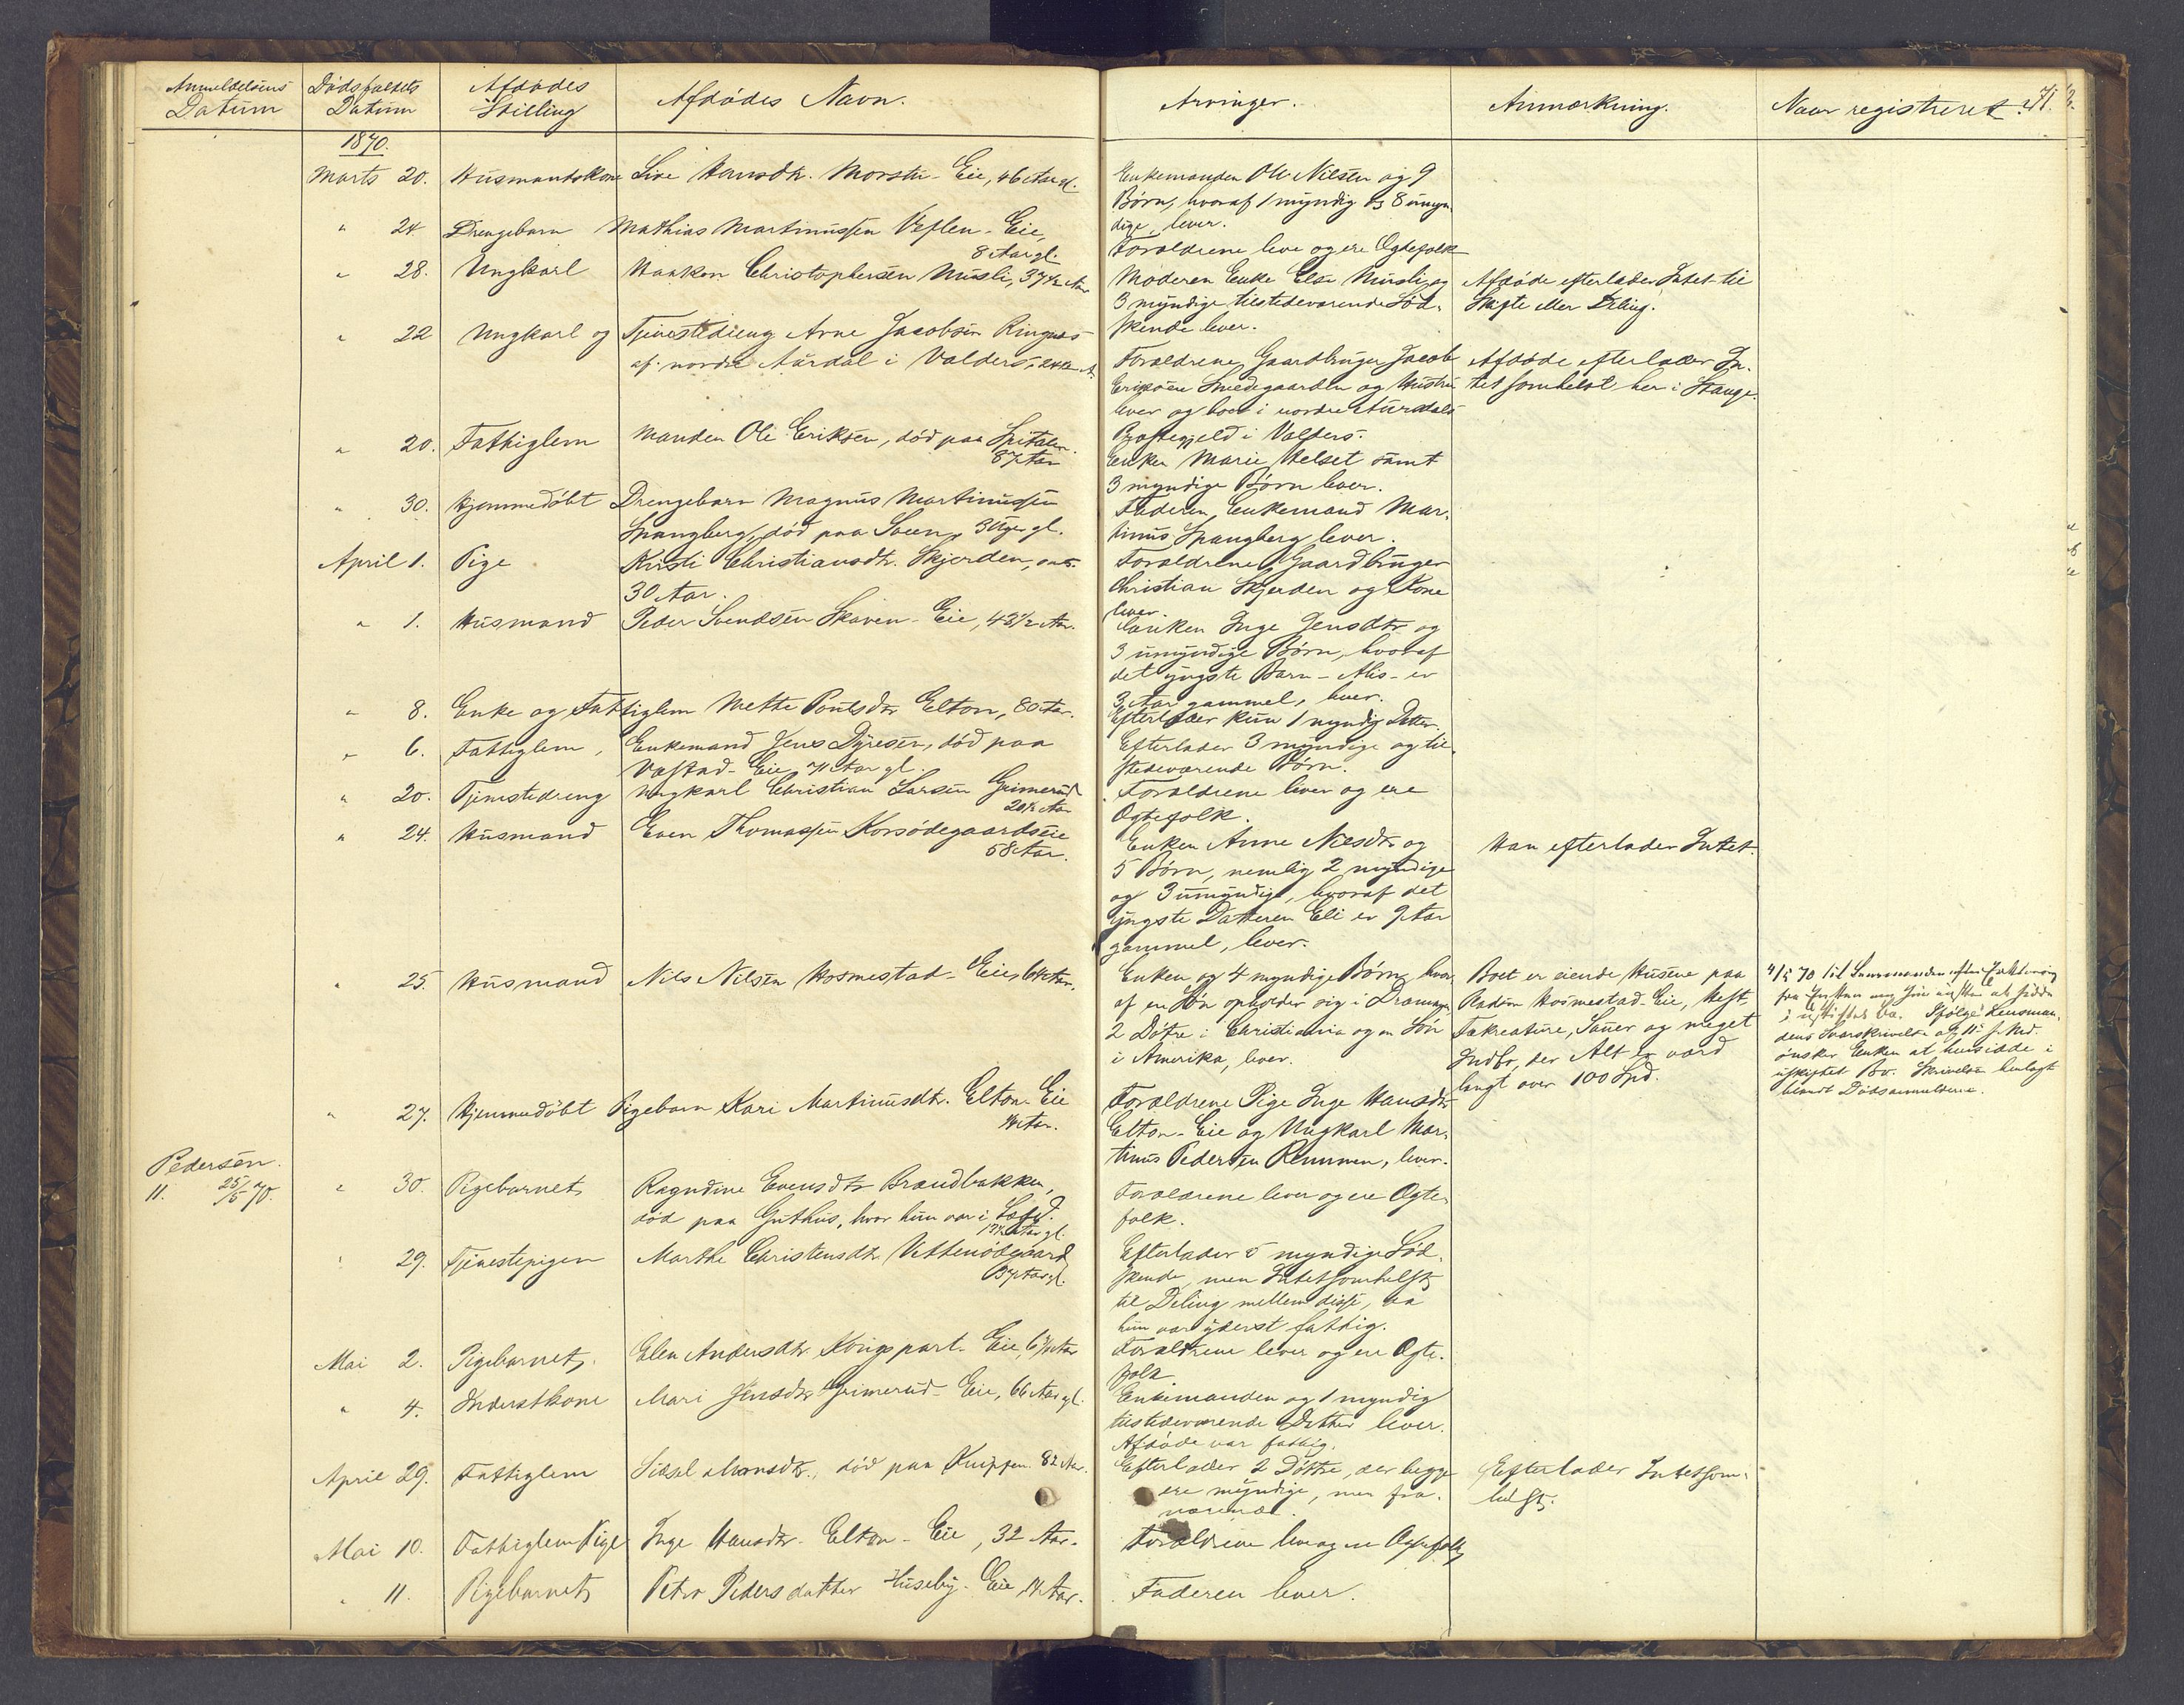 Anmeldelsens Datum
Dødsfaldets Datum
Afdødes Stilling
Afdødes Navn.
Arvinger.
Anmærkning.
Naar registreret?
71.
1870.
Marts 20. Husmandskone Live Hansdtr. Morstu-Eie, 46 Aar gl.
Enkemanden Ole Nilsen og 9
Børn, hvoraf 1 myndig og 8 umyn-
dige, lever.
" 24. Drengebarn Mathias Martinussen Veflen-Eie,
8 Aar gl.
Forældrene leve og ere Ægtefolk
" 28. Ungkarl Haakon Christophersen Musli, 37 1/2 Aar
Moderen Enke Else Musli og
3 myndige tilstedeværende Sød-
skende lever.
Afdøde efterlader Intet til
Skifte eller Deling.
" 22 Ungkarl og Tjenestedreng Arne Jacobsen Ringnes
af nordre Aurdal i Valders, 24 1/2 A.
Forældrene, Gaardbruger Jacob
Eriksen Smedsgaarden og Hustru
lever og boer i nordre Aurdals
Præstegjeld i Valders.
Afdøde efterlader In-
tet somhelst her i Stange.
" 20. Fattiglem Manden Ole Eriksen, död paa Spitalen.
87 Aar
Enken Marie Helset samt
3 myndige Børn lever.
" 30. Hjemmedöbt Drengebarn Magnus Martinussen
Spangberg, död paa Saen, 3 Uger gl.
Faderen, Enkemand Mar-
tinus Spangberg lever.
April 1. Pige Kristi Christiansdtr. Skjerden, omtr.
30 Aar.
Forældrene Gaardbruger
Christian Skjerden og Kone
lever.
" 1. Husmand Peder Svendsen Skaven-Eie, 43 1/2 Aar.
Enken Inge Jensdtr og
3 umyndige Børn, hvoraf
det yngste Barn - Alis - er
3 Aar gammel, lever.
" 8. Enke og Fattiglem Mette Poulsdtr Elton, 80 Aar.
Efterlader kun 1 myndig Datter.
" 6. Fattiglem, Enkemand Jens Dyresen, död paa
Vestad-Eie, 71 Aar gl.
Efterlader 3 myndige og til-
stedeværende Børn.
" 20. Tjenestedreng Ungkarl Christian Larsen Grimerud
20 1/2 Aar
Forældrene lever og ere
Ægtefolk.
" 24. Husmand Even Thomassen Korsödegaardseie
58 Aar.
Enken Anne Nilsdtr og
5 Børn, nemlig 2 myndige
og 3 umyndige, hvoraf det
yngste Datteren Eli er 9 Aar
gammel, lever.
Han efterlader Intet.
" 25. Husmand Nils Nilsen Hosmestad-Eie, 64 Aar.
Enken og 4 myndige Børn, hvor-
af en Søn opholder sig i Drammen,
2 Døtre i Christiania og en Søn
i Amerika, lever.
Boet er eiende Husene paa
Pladsen Hosmestad-Eie, Hest,
Fækreature, Sauer og meget
Indbo, der Alt er værd
langt over 100 Spd.
4/5 70 til Lensmanden
i uskiftet Bo. Ifølge Lensman-
dens Svarskrivelse af 11 s. Md.
ønsker Enken at hensidde i
uskiftet Bo. Skrivelsen henlagt
blandt Dødsanmeldelserne.
" 27. Hjemmedöbt Pigebarn Kari Martinusdtr. Elton-Eie
1/4 Aar.
Forældrene Pige Inge Hansdtr
Elton-Eie og Ungkarl Mar-
tinus Pedersen Remmen, lever.
Pedersen.
11. 25/5 70.
" 30. Pigebarnet Ragndine Evensdtr Brændbakken,
död paa Guthus, hvor hun var i Lægd.
Aar gl.
Forældrene lever og ere Ægte-
folk.
" 29. Tjenestepigen Marthe Christensdtr Vettenödegaard
37 Aar gl.
Efterlader 5 myndige Sød-
skende, men Intetsomhelst
til Deling mellem disse, da
hun var yderst fattig.
Mai 2. Pigebarnet, Elen Andersdtr. Kongspart-Eie, 6 1/2 Aar
Forældrene lever og ere Ægte-
folk
" 4. Inderstkone Mari Jensdtr Grimerud-Eie, 66 Aar gl.
Enkemanden og 1 myndig
tilstedeværende Datter lever.
Afdöde var fattig.
April 29. Fattiglem Sidsel Monsdtr., död paa Knippen. 82 Aar.
Efterlader 2 Døttre, der begge
ere myndige, men fra-
værende.
Efterlader Intetsom-
helst.
Mai 10. Fattiglem Pige Inge Hansdtr. Elton-Eie, 32 Aar.
Forældrene lever og ere Ægtefolk
" 11. Pigebarnet Petra Pedersdatter Huseby-Eie, 1/4 Aar.
Faderen lever.